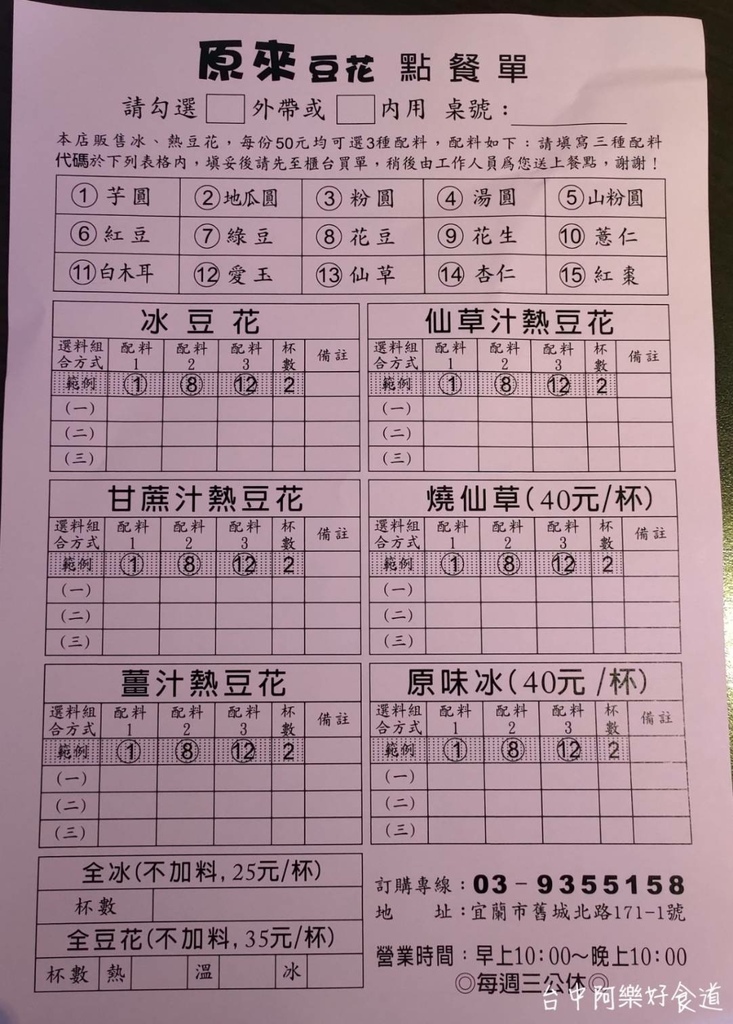 原來豆花 點餐單
請勾選 外帶或 內用 桌號：
本店販售冰、熱豆花，每份50元均可選3種配料，配料如下：請填寫三種配料
代碼於下列表格內，填妥後請先至櫃台買單，稍後由工作人員為您送上餐點，謝謝！
①芋圓 ②地瓜圓 ③粉圓 ④湯圓 ⑤山粉圓
⑥紅豆 ⑦綠豆 ⑧花豆 ⑨花生 ⑩薏仁
⑪白木耳 ⑫愛玉 ⑬仙草 ⑭杏仁 ⑮紅棗
冰豆花
選料組合方式 配料1 配料2 配料3 杯數 備註
範例 ① ⑧ ⑫ 2
(一)
(二)
(三)
仙草汁熱豆花
選料組合方式 配料1 配料2 配料3 杯數 備註
範例 ① ⑧ ⑫ 2
(一)
(二)
(三)
甘蔗汁熱豆花
選料組合方式 配料1 配料2 配料3 杯數 備註
範例 ① ⑧ ⑫ 2
(一)
(二)
(三)
燒仙草(40元/杯)
選料組合方式 配料1 配料2 配料3 杯數 備註
範例 ① ⑧ ⑫ 2
(一)
(二)
(三)
薑汁熱豆花
選料組合方式 配料1 配料2 配料3 杯數 備註
範例 ① ⑧ ⑫ 2
(一)
(二)
(三)
原味冰(40元/杯)
選料組合方式 配料1 配料2 配料3 杯數 備註
範例 ① ⑧ ⑫ 2
(一)
(二)
(三)
全冰(不加料,25元/杯)
杯數
全豆花(不加料,35元/杯)
杯數 熱 溫 冰
訂購專線：03-9355158
地 址：宜蘭市舊城北路171-1號
營業時間：早上10:00～晚上10:00
◎每週三公休◎
台中阿樂好食道